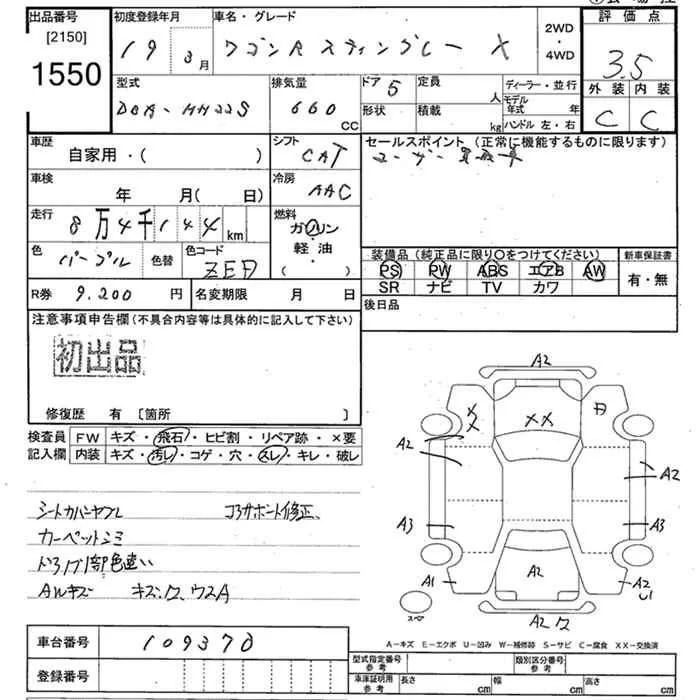 出品番号 初度登録年月 車名・グレード 評価点
[2150] 2WD
1550 19 3月 ワゴンR スティングレー X ・4WD 3.5
型式 排気量 ドア 5 定員 人 ディーラー・並行 外装 内装
DBA-MH22S 660 CC 形状 積載 kg モデル年式 年 C C
ハンドル 左・右
車歴 自家用・( ) シフト CAT セールスポイント(正常に機能するものに限ります)
車検 年 月( 日) 冷房 AAC
走行 8万4千144km 燃料 ガソリン・軽油 ( )
色 パープル 色替 色コード ZED 装備品(純正品に限り○をつけてください) 新車保証書
PS PW ABS エアB AW 有・無
SR ナビ TV カワ
R券 9,200円 名変期限 月 日 後日品
注意事項申告欄(不具合内容等は具体的に記入して下さい)
初出品
修復歴 有 〔箇所 〕
検査員 FW キズ・飛石・ヒビ割・リペア跡・×要
記入欄 内装 キズ・汚レ・コゲ・穴・スレ・キレ・破レ
A2
××
A2 A2
A3 A3
A1 A2 A2
U1
A2
スペア
シートカバーヤブレ コアサポート修正
カーペットシミ
ドアノブ1部色違い
AWキズ キズ・ワ ウスA
A-キズ E-エクボ U-凹み W-補修跡 S-サビ C-腐食 XX-交換済
車台番号 109370
登録番号
型式指定番号 参考 類別区分番号 参考
車庫証明用 参考 長さ cm 幅 cm 高さ cm